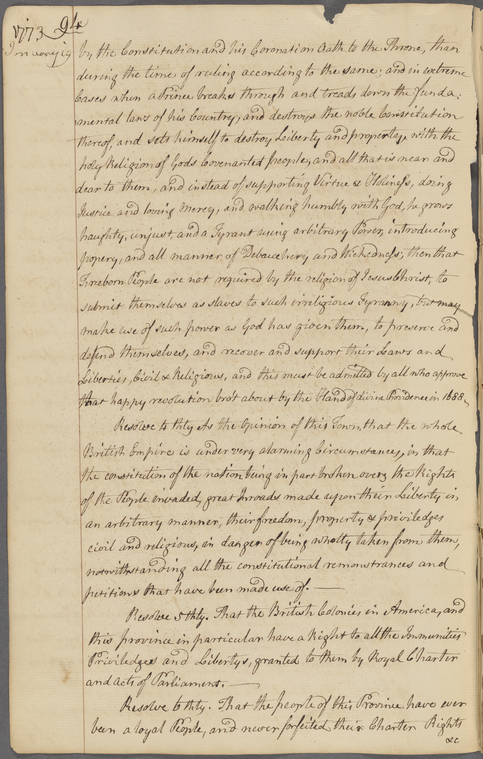 1773 94
by the Constitution and his Coronation Oath to the Throne, than
during the time of ruling according to the same; and in extreme
Cases when a Prince breakes through and treads down the funda:
mental laws of his Country, and destroys the noble Constitution
thereof, and sets himself to destroy Liberty and property, with the
holy Religion of Gods Covenanted people, and all that is near and
dear to them, and instead of supporting Virtue & Holiness, doing
Justice and loving Mercy, and walking humbly with God, he grows
haughty, unjust, and a Tyrant using arbitrary Power, introducing
popery, and all manner of Debauchery and Wickedness; then that
Freeborn People are not required by the religion of Jesus Christ, to
submit themselves as slaves to such irreligious Tyranny, but may
make use of such power as God has given them, to preserve and
defend themselves, and recover and support their Laws and
Liberties, Civil & Religious, and this must be admitted by all who approve
that happy revolution bro't about by the Hand of divine Providence in 1688.
Resolve 4thly. As the Opinion of this Town that the whole
British Empire is under very alarming Circumstances, in that
the constitution of the nation being in part broken over, the Rights
of the People invaded, great inroads made upon their Liberty in
an arbitrary manner, their freedom, property & priviledges
civil and religious, in danger of being wholly taken from them,
notwithstanding all the constitutional remonstrances and
petitions that have been made use of.
Resolve 5thly. That the British Colonies in America, and
this province in particular have a Right to all the Immunities
Priviledges and Libertys, granted to them by Royal Charter
and acts of Parliament.
Resolve 6thly. That the people of this Province have ever
been a loyal People, and never forfeited their Charter Rights
&c